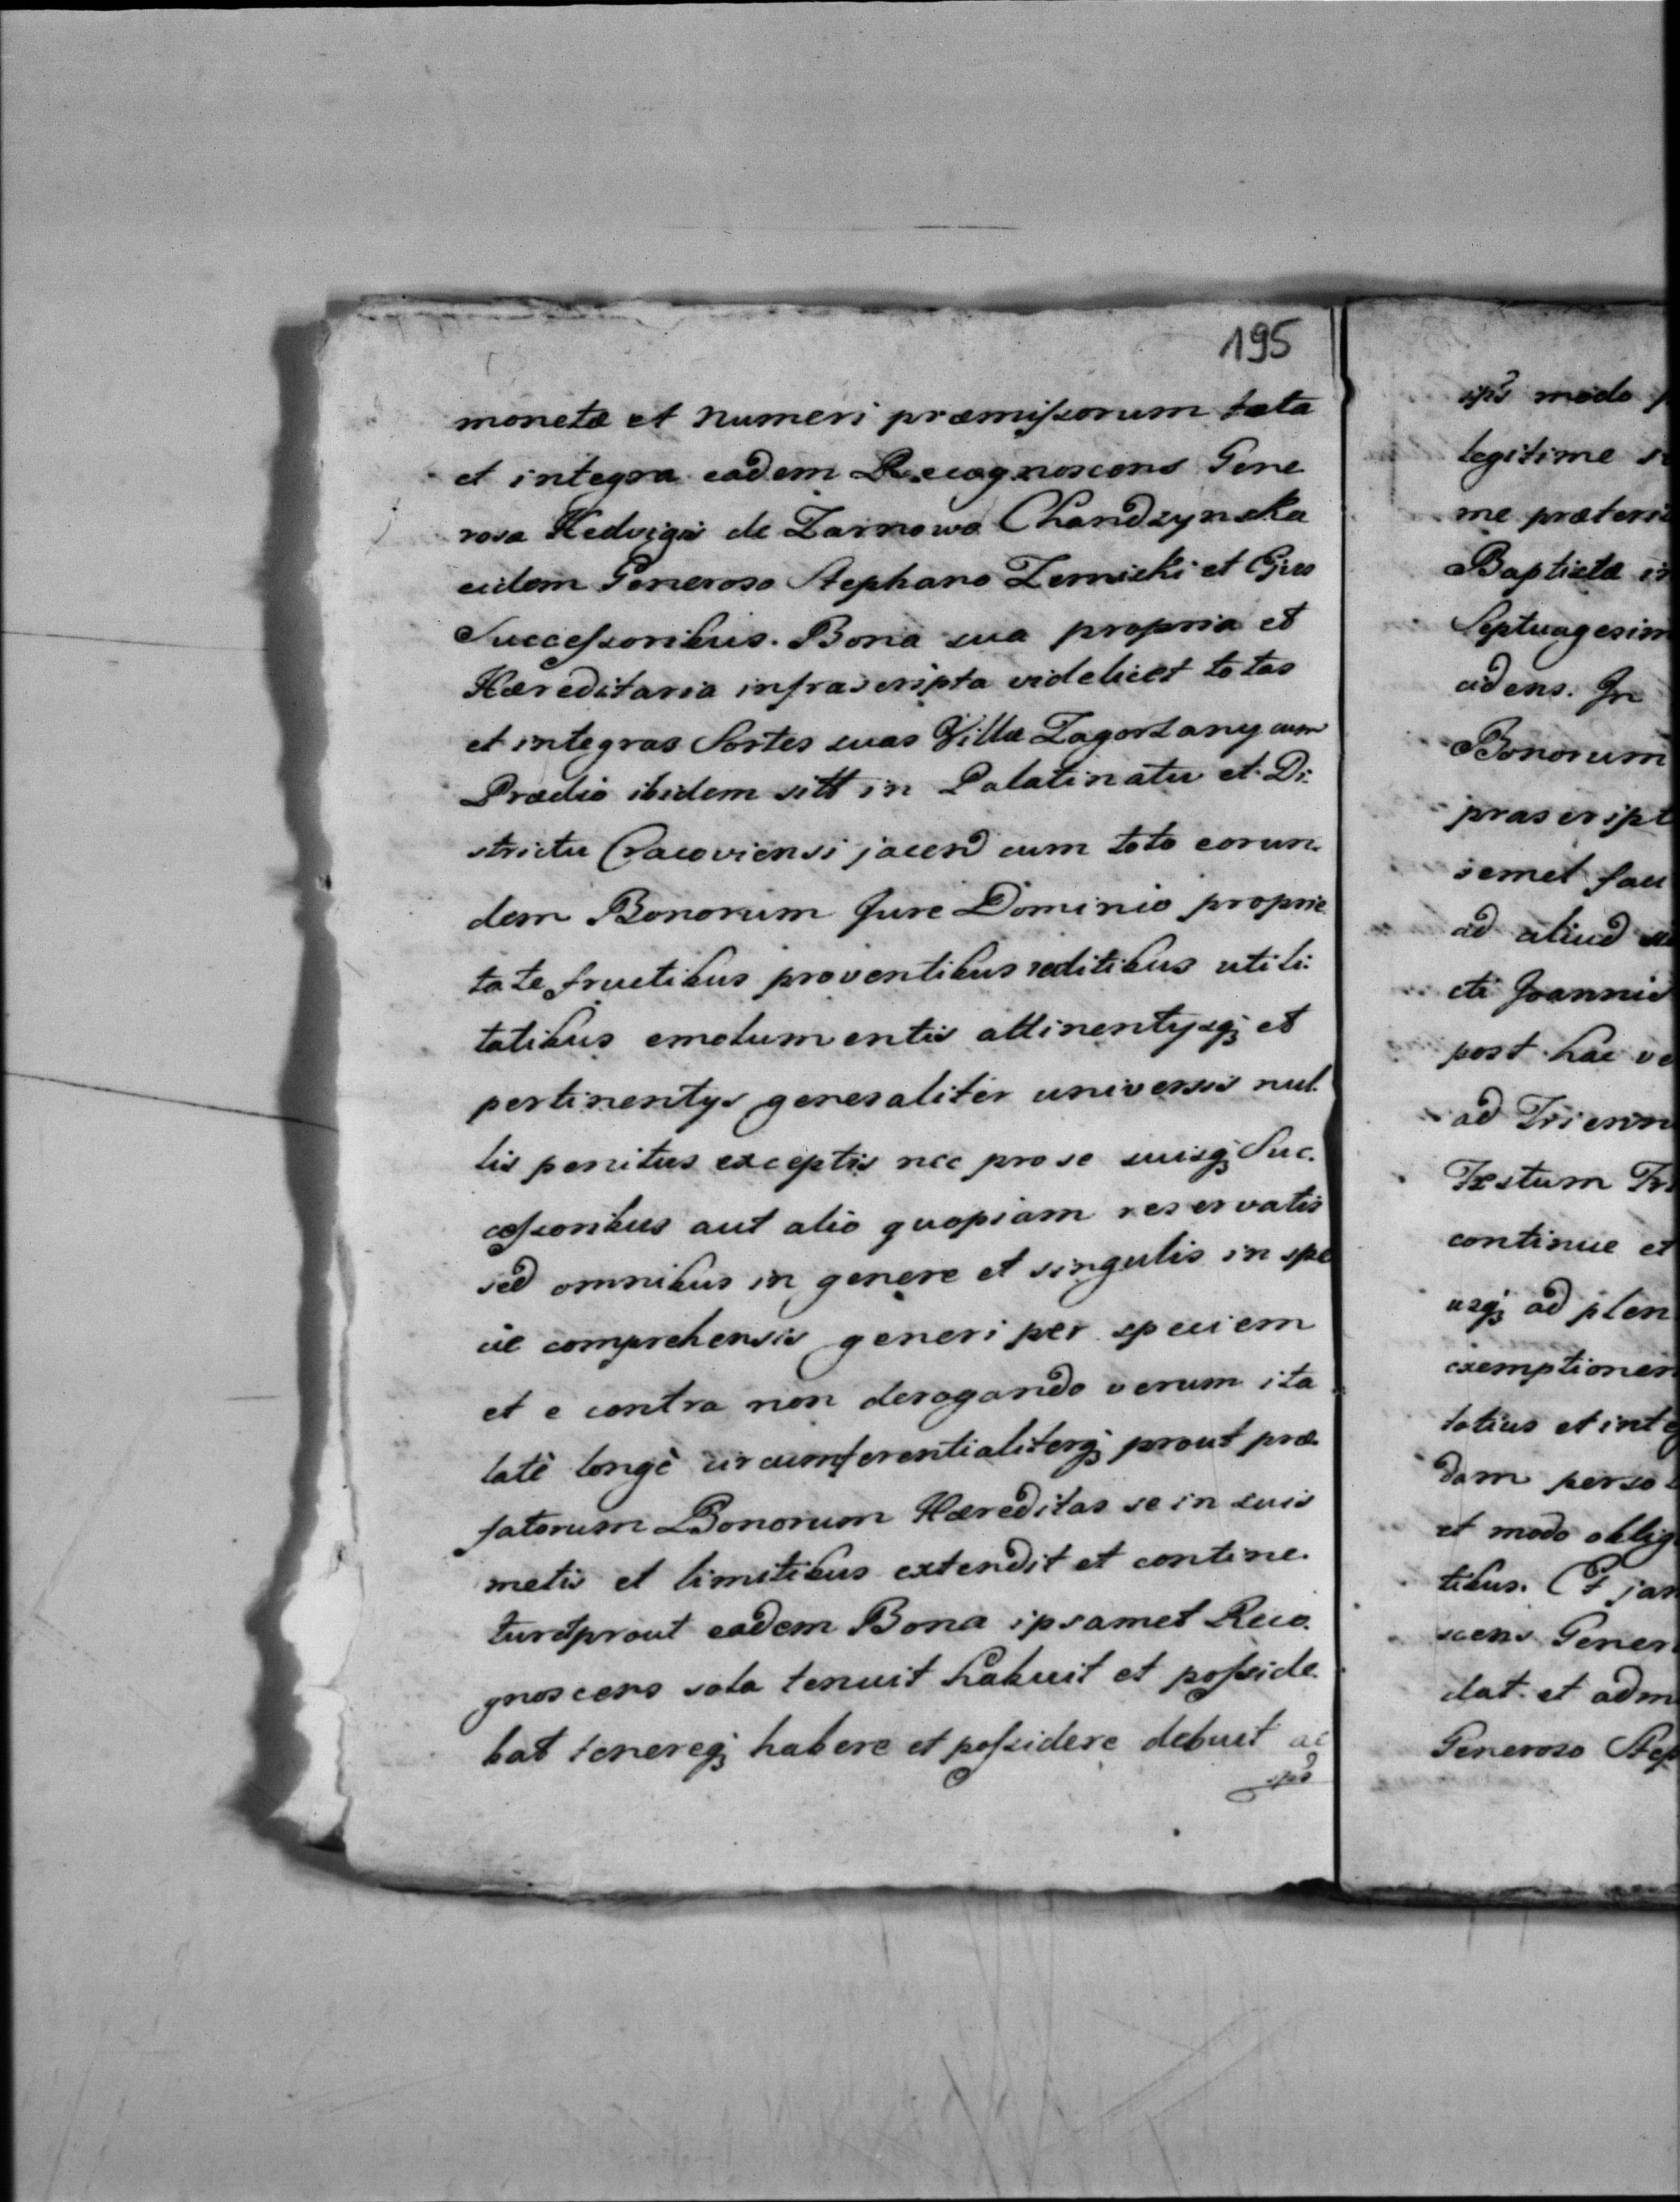 195
monetæ et numeri præmissorum tota
et integra eadem Recognoscens Gene
rosa Hedvigis de Zarnowo Chandzynska
eidem Generoso Stephano Zernicki et Ejus
Successoribus. Bona sua propria et
Hæreditaria infrascripta videlicet totas
et integras Sortes suas Villæ Zagorzany cum
Prædio ibidem sitt in Palatinatu et Di:
strictu Cracoviensi jacend cum toto eorun:
dem Bonorum Jure Dominio proprie
tate fructibus proventibus reditibus utili:
tatibus emolumentis attinentysqꝫ et
pertinentys generaliter universis nul:
lis penitus exceptis nec pro se suisqꝫ Suc:
cessoribus aut alio quopiam reservatis
sed omnibus in genere et singulis in spe
cie comprehensis generi per speciem
et e contra non derogando verum ita
latè longè circumferentialiterqꝫ prout præ:
fatorum Bonorum Hæreditas se in suis
metis et limitibus extendit et contine:
tur et prout eadem Bona ipsamet Reco:
gnoscens sola tenuit habuit et posside:
bat tenereqꝫ habere et possidere debuit ac
ips
ips modo
legitime
me præteri
Baptistæ in
Septuagesim
cidens. In
Bonorum
præscript
semet fac
ad aliud
cti Joannis
post hac ve
ad Trienn
Festum
continue et
usqꝫ ad plen
exemptionem
totius et integ
dam perso
et modo oblig
tibus. Et jam
scens Gener
dat et adm
Generoso Step